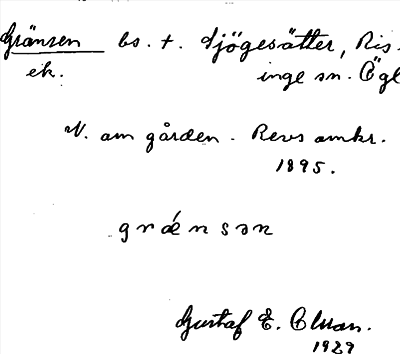 Gränsen bs. t. Sjögesätter, Ris-
ek. inge sn. Ögl
N. om gården. Revs omkr.
1895.
grǽnsən
Gustaf E. Olsson.
1929